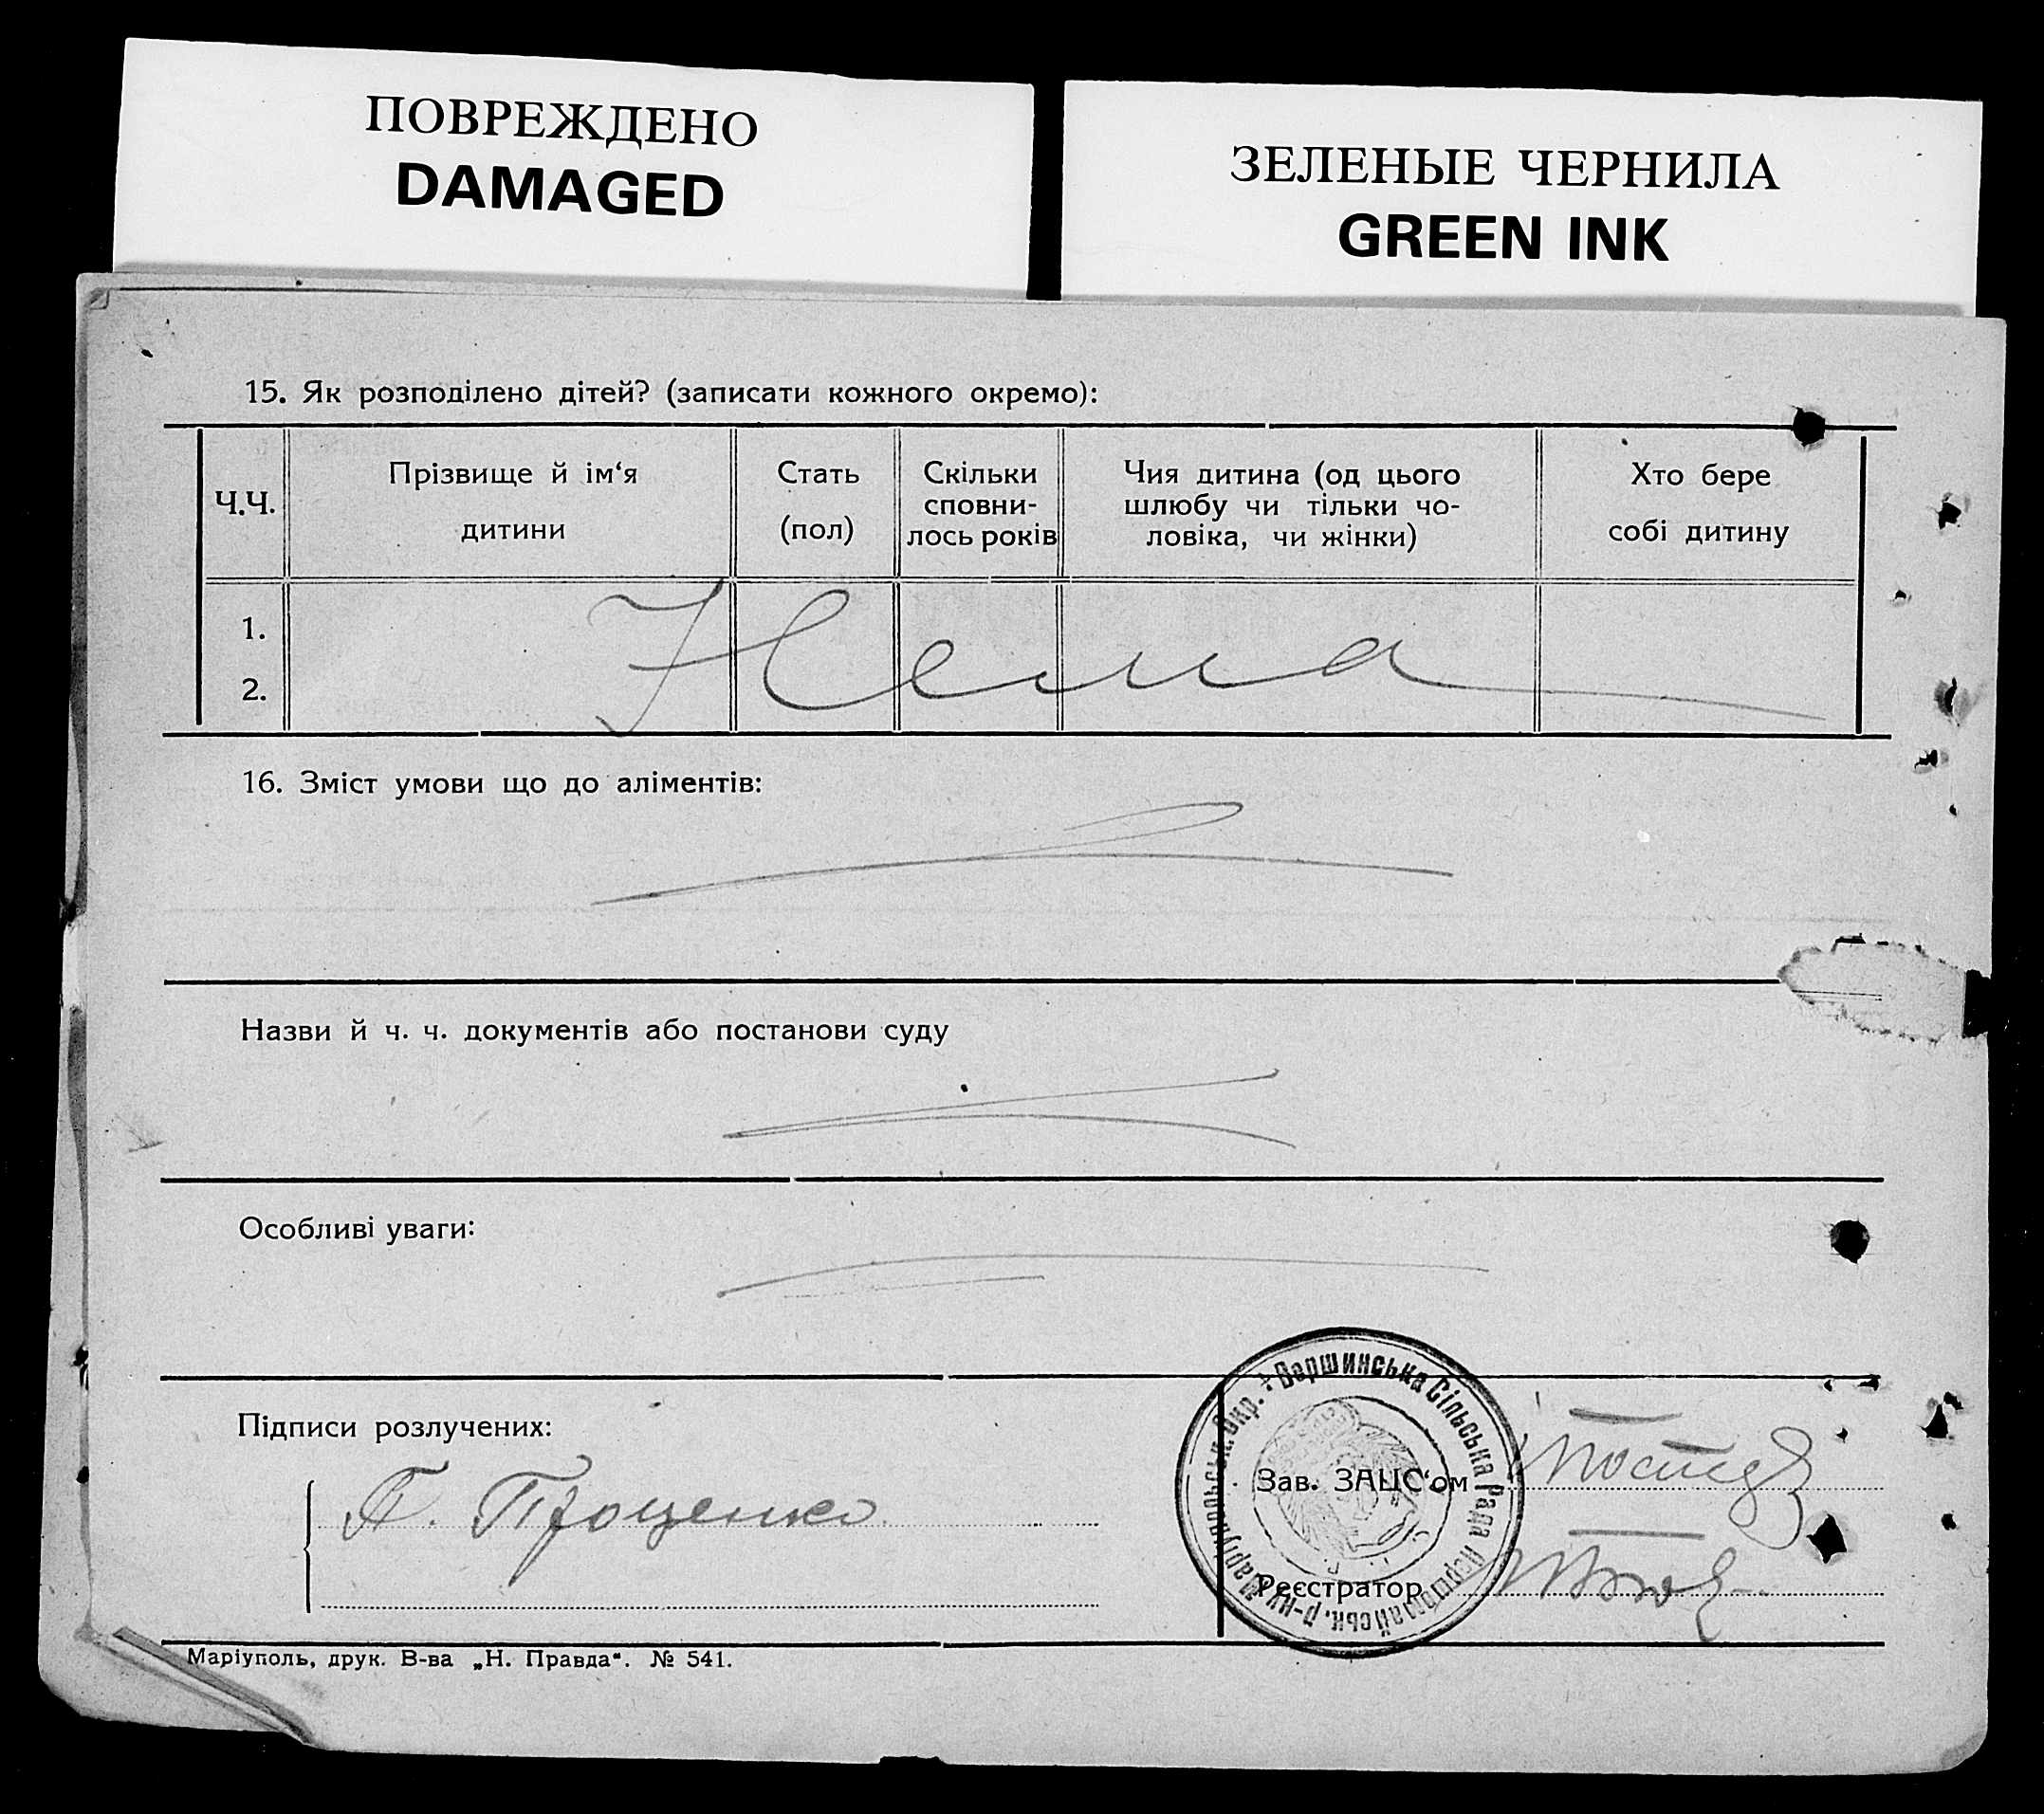 ПОВРЕЖДЕНО
DAMAGED
ЗЕЛЕНЫЕ ЧЕРНИЛА
GREEN INK
15. Як розподілено дітей? (записати кожного окремо):
Ч.Ч.
Прізвище й ім‘я
дитини
Стать
(пол)
Скільки
сповни-
лось років
Чия дитина (од цього
шлюбу чи тільки чо-
ловіка, чи жінки)
Хто бере
собі дитину
1.
2.
Нема
16. Зміст умови що до аліментів:
Назви й ч. ч. документів або постанови суду
Особливі уваги:
Підписи розлучених:
П. Проценко
Вершинська Сільська Рада Першомайськ. р-ну Маріупольськ. Окр.
Зав. ЗАЦС‘ом
Реєстратор
Маріуполь, друк. В-ва „Н. Правда“. № 541.